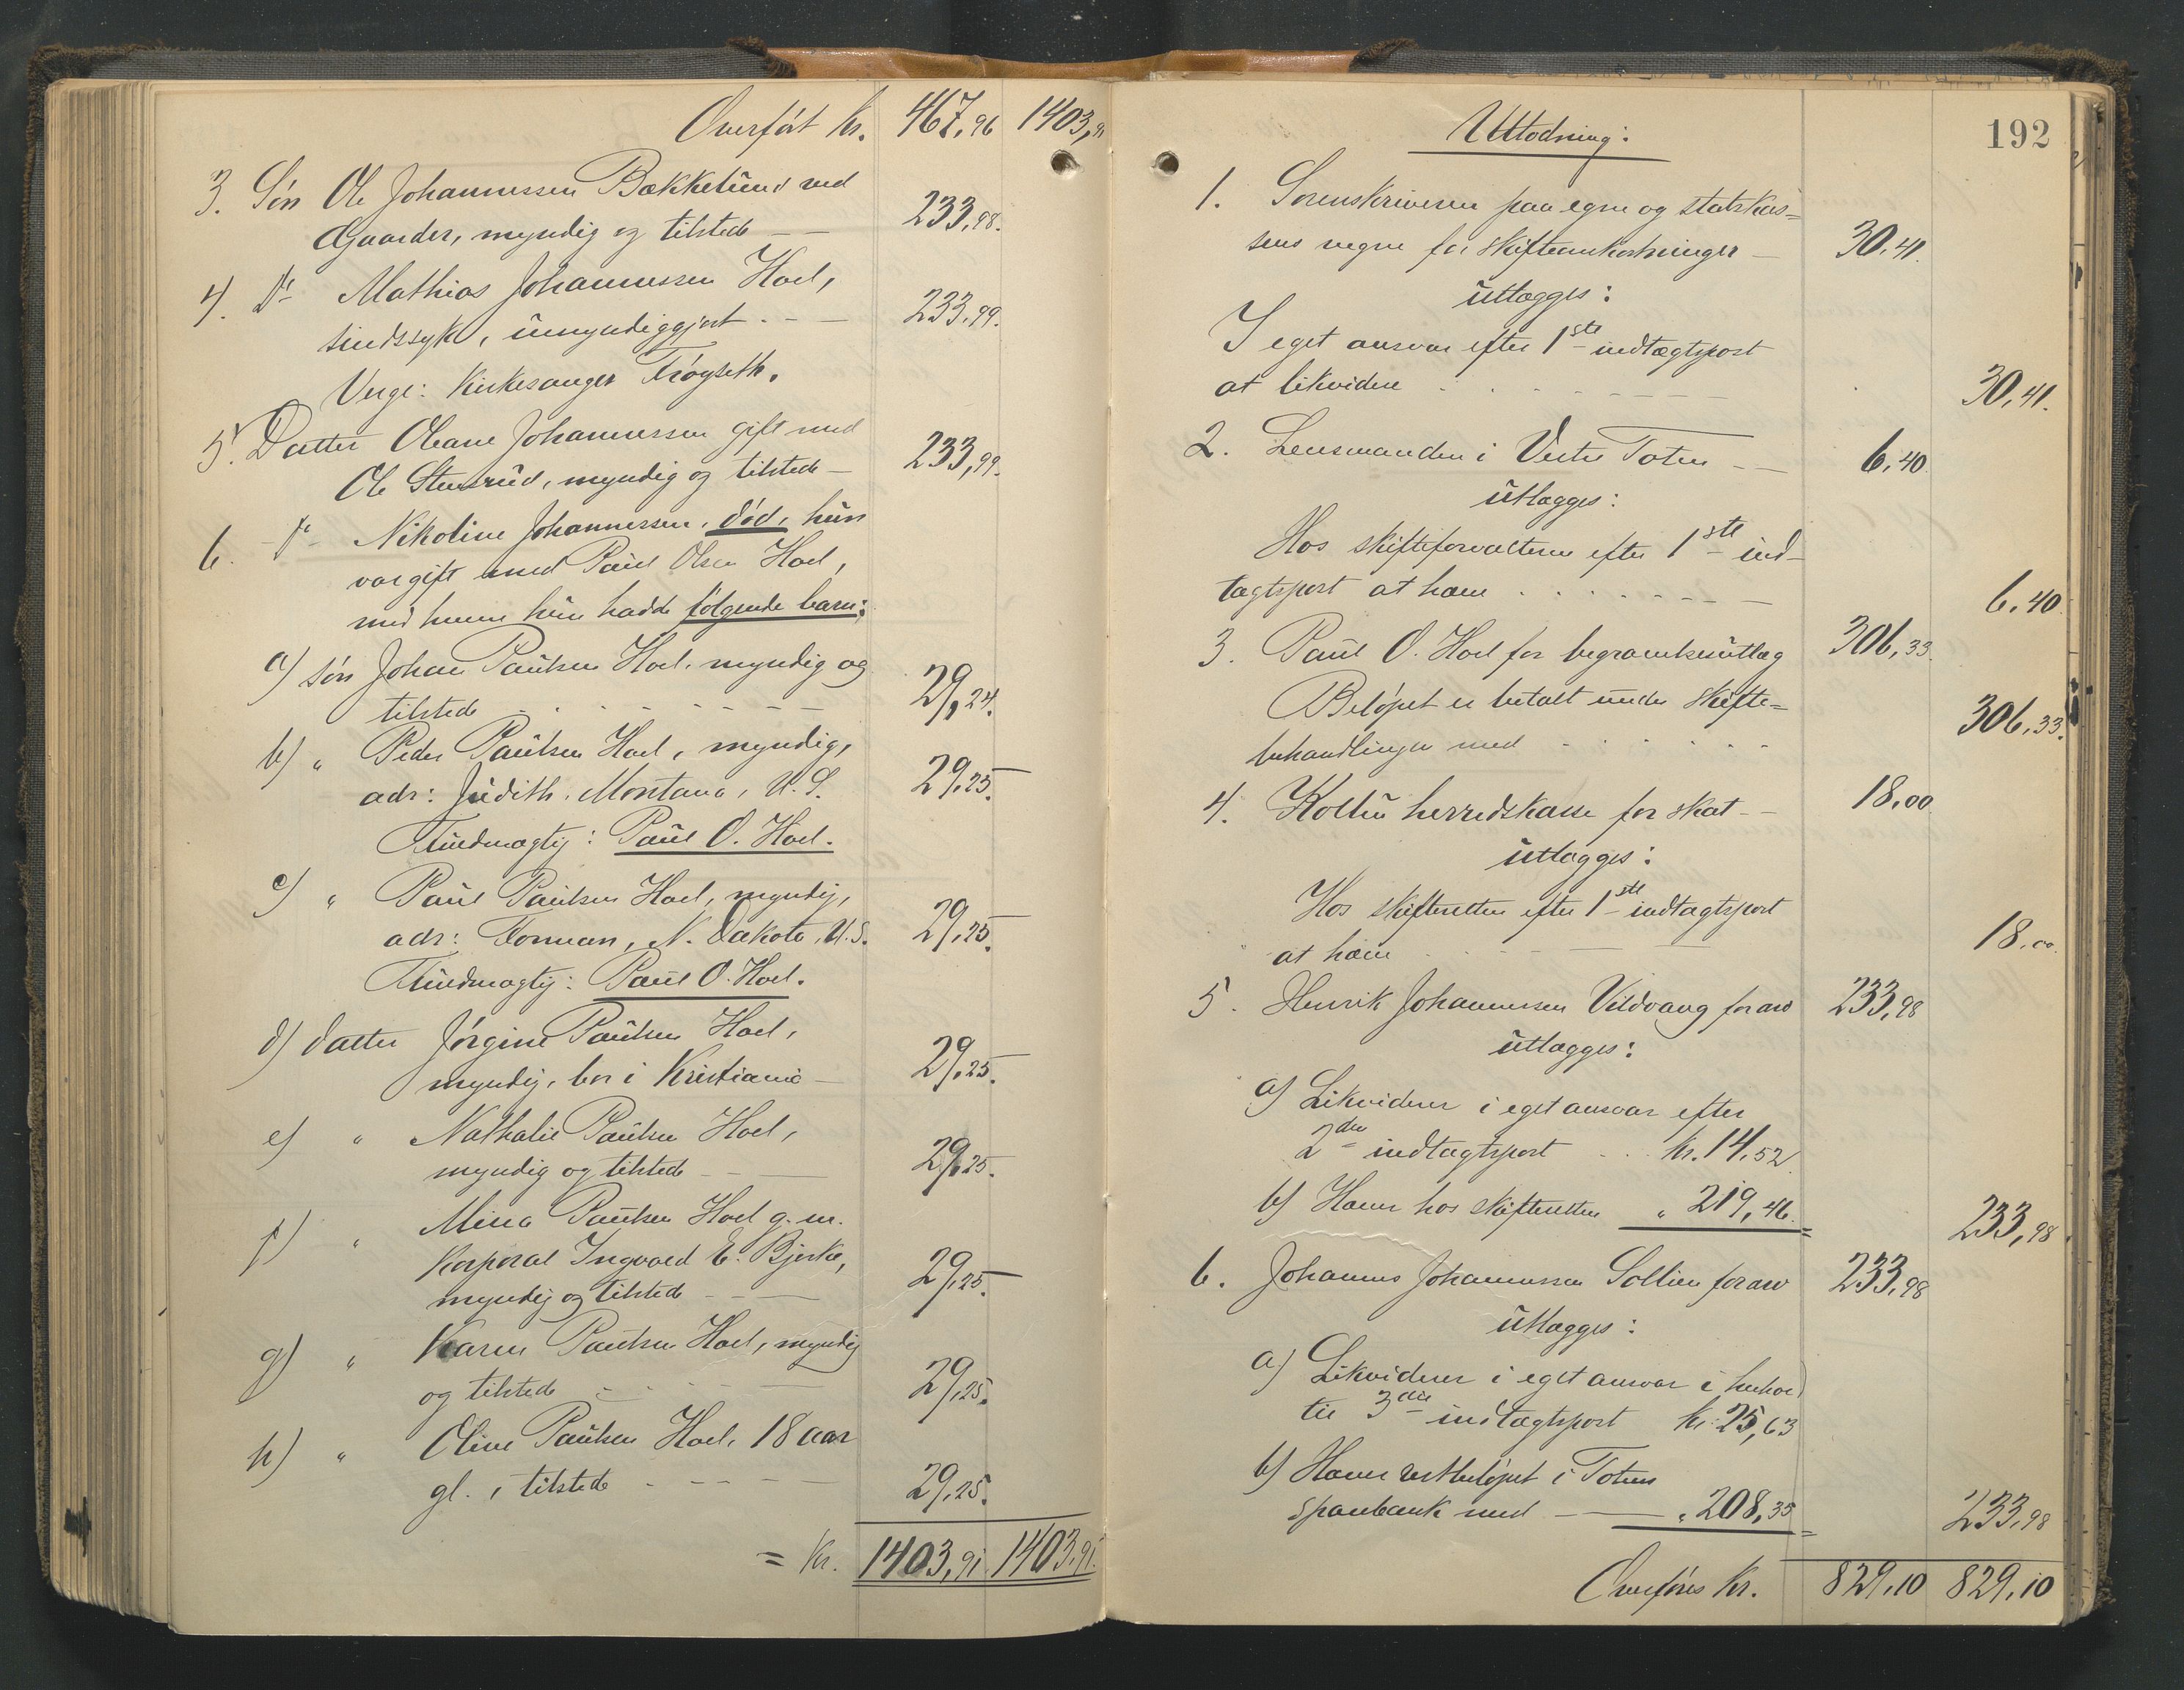 Overført kr. 467,96 1403,91
3. Søn Ole Johannessen Bækkelund ved
Gaarder, myndig og tilstede — 233,98.
4. Do Mathias Johannessen Hoel,
sindssyk, umyndiggjort. — 233,99.
Verge: Kirkesanger Frøyseth.
5. Datter Oleane Johannessen gift med
Ole Stensrud, myndig og tilstede — 233,99.
6. — Do — Nikoline Johannessen, død, hun
var gift med Paul Olsen Hoel,
med hvem hun hadde følgende barn:
a) søn Johan Paulsen Hoel, myndig og
tilstede 29,24.
b) " Peder Paulsen Hoel, myndig,
adr: Judith, Montana, U.S. 29,25.
Fuldmægtig: Paul O. Hoel.
c) " Paul Paulsen Hoel, myndig,
adr: Forman, N. Dakota, U.S. 29,25.
Fuldmægtig: Paul O. Hoel.
d) datter Jørgine Paulsen Hoel,
myndig, bor i Kristiania — 29,25.
e) " Nathalie Paulsen Hoel,
myndig og tilstede — 29,25.
f) " Mina Paulsen Hoel g. m.
Korporal Ingvald E. Bjerke,
myndig og tilstede — 29,25.
g) " Karen Paulsen Hoel, myndig
og tilstede 29,25.
h) " Oline Paulsen Hoel, 18 aar
gl., tilstede 29,25.
= Kr. 1403,91. 1403,91.
192
Utlodning:
1. Sorenskriveren paa egne og statskas=
sens vegne for skifteomkostninger — 30,41.
utlægges:
I eget ansvar efter 1ste indtægtspost
at likvidere 30,41.
2. Lensmanden i Vestre Toten — 6,40
utlægges:
Hos skifteforvalteren efter 1ste ind-
tægtspost at hæve 6,40.
3. Paul O. Hoel for begravelsesutlæg 306,33.
Beløpet er betalt under skifte=
behandlingen med 306,33.
4. Kolbu herredskasse for skat — 18,00
utlægges:
Hos skifteretten efter 1ste indtægtspost
at hæve 18,00.
5. Henrik Johannessen Vildvang for arv 233,98
utlægges:
a) Likviderer i eget ansvar efter
2den indtægtspost kr. 14,52.
b) Hæver hos skifteretten " 219,46. 233,98
6. Johannes Johannessen Sollien for arv 233,98
utlægges:
a) Likviderer i eget ansvar i henhold
til 3die indtægtspost kr. 25,63
b) Hæver restbeløpet i Totens
sparebank med — " 208,35 233,98
Overføres kr. 829,10 829,10